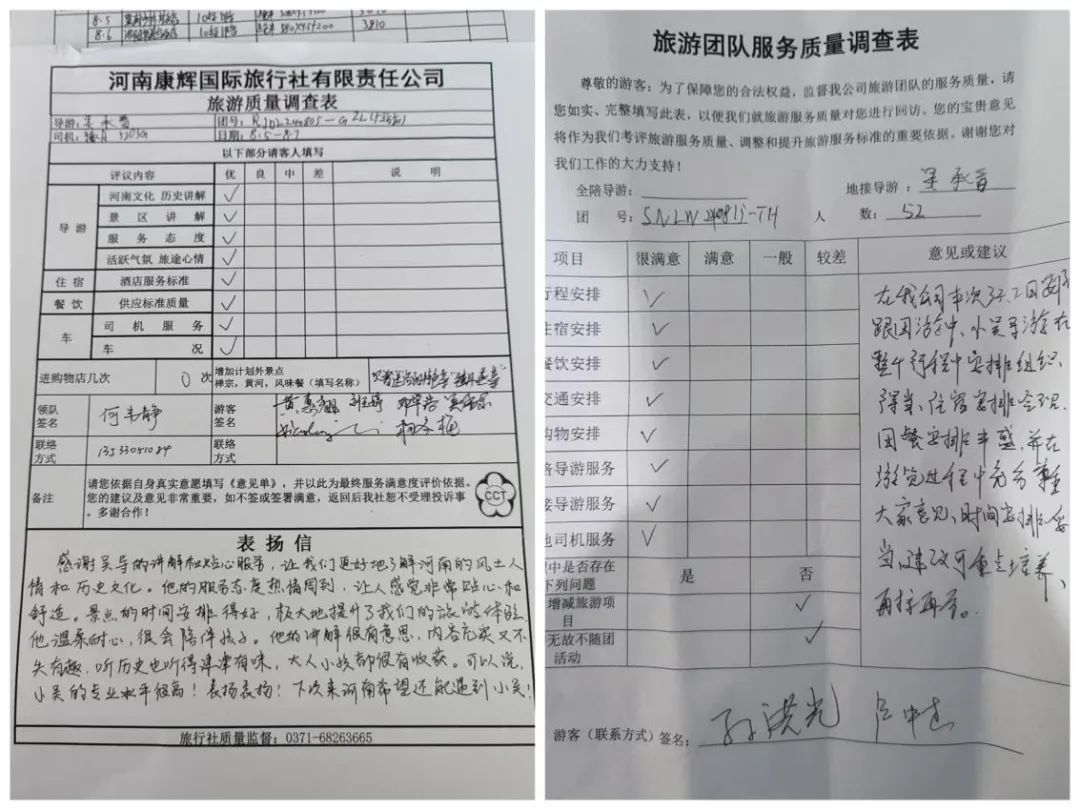 8.5
8.6 3810
河南康辉国际旅行社有限责任公司
旅游质量调查表
导游: 吴承晋 团号:
司机: 日期: 8.5-8.7
以下部分请客人填写
评议内容 优 良 中 差 说 明
导 游 河南文化 历史讲解 ✓
景 区 讲 解 ✓
服 务 态 度 ✓
活跃气氛 旅途心情 ✓
住 宿 酒店服务标准 ✓
餐 饮 供应标准质量 ✓
车 司 机 服 务 ✓
车 况 ✓
进购物店几次 0 次 增加计划外景点
禅宗,黄河,风味餐(填写名称)
领队
签名 何韦静 游客
签名
联络
方式 13533051084 联络
方式
备注 请您依据自身真实意愿填写《意见单》,并以此为最终服务满意度评价依据。
您的建议及意见非常重要,如不签或签署满意,返回后我社恕不受理投诉事
。多谢合作!
CCT
表 扬 信
感谢吴导的讲解和贴心服务,让我们更好地了解河南的风土人
情和历史文化。他的服务态度热情周到,让人感觉非常贴心和
舒适。景点的时间安排得好,极大地提升了我们的旅游体验.
他温柔耐心,很会陪伴孩子。他的讲解很有意思,内容充实又不
失有趣,听历史也听得津津有味,大人小孩都很有收获。可以说,
小吴的专业水平很高!表扬表扬!下次来河南希望还能遇到小吴!
旅行社质量监督:0371-68263665
旅游团队服务质量调查表
尊敬的游客:为了保障您的合法权益,监督我公司旅游团队的服务质量,请
您如实、完整填写此表,以便我们就旅游服务质量对您进行回访。您的宝贵意见
将作为我们考评旅游服务质量、调整和提升旅游服务标准的重要依据。谢谢您对
我们工作的大力支持!
全陪导游: 地接导游:吴承晋
团 号: 人 数:52
项目 很满意 满意 一般 较差 意见或建议
行程安排 ✓
住宿安排 ✓
餐饮安排 ✓
交通安排 ✓
购物安排 ✓
陪导游服务 ✓
接导游服务 ✓
地司机服务 ✓
中是否存在
下列问题 是 否
增减旅游项
目 ✓
无故不随团
活动 ✓
跟团游中、小吴导游在
整个行程中安排组织
得当、住宿安排合理.
团餐安排丰盛,并在
游览过程中充分尊重
大家意见、时间安排妥
当,建议可重点培养、
再接再厉。
游客(联系方式)签名: 孙洪光